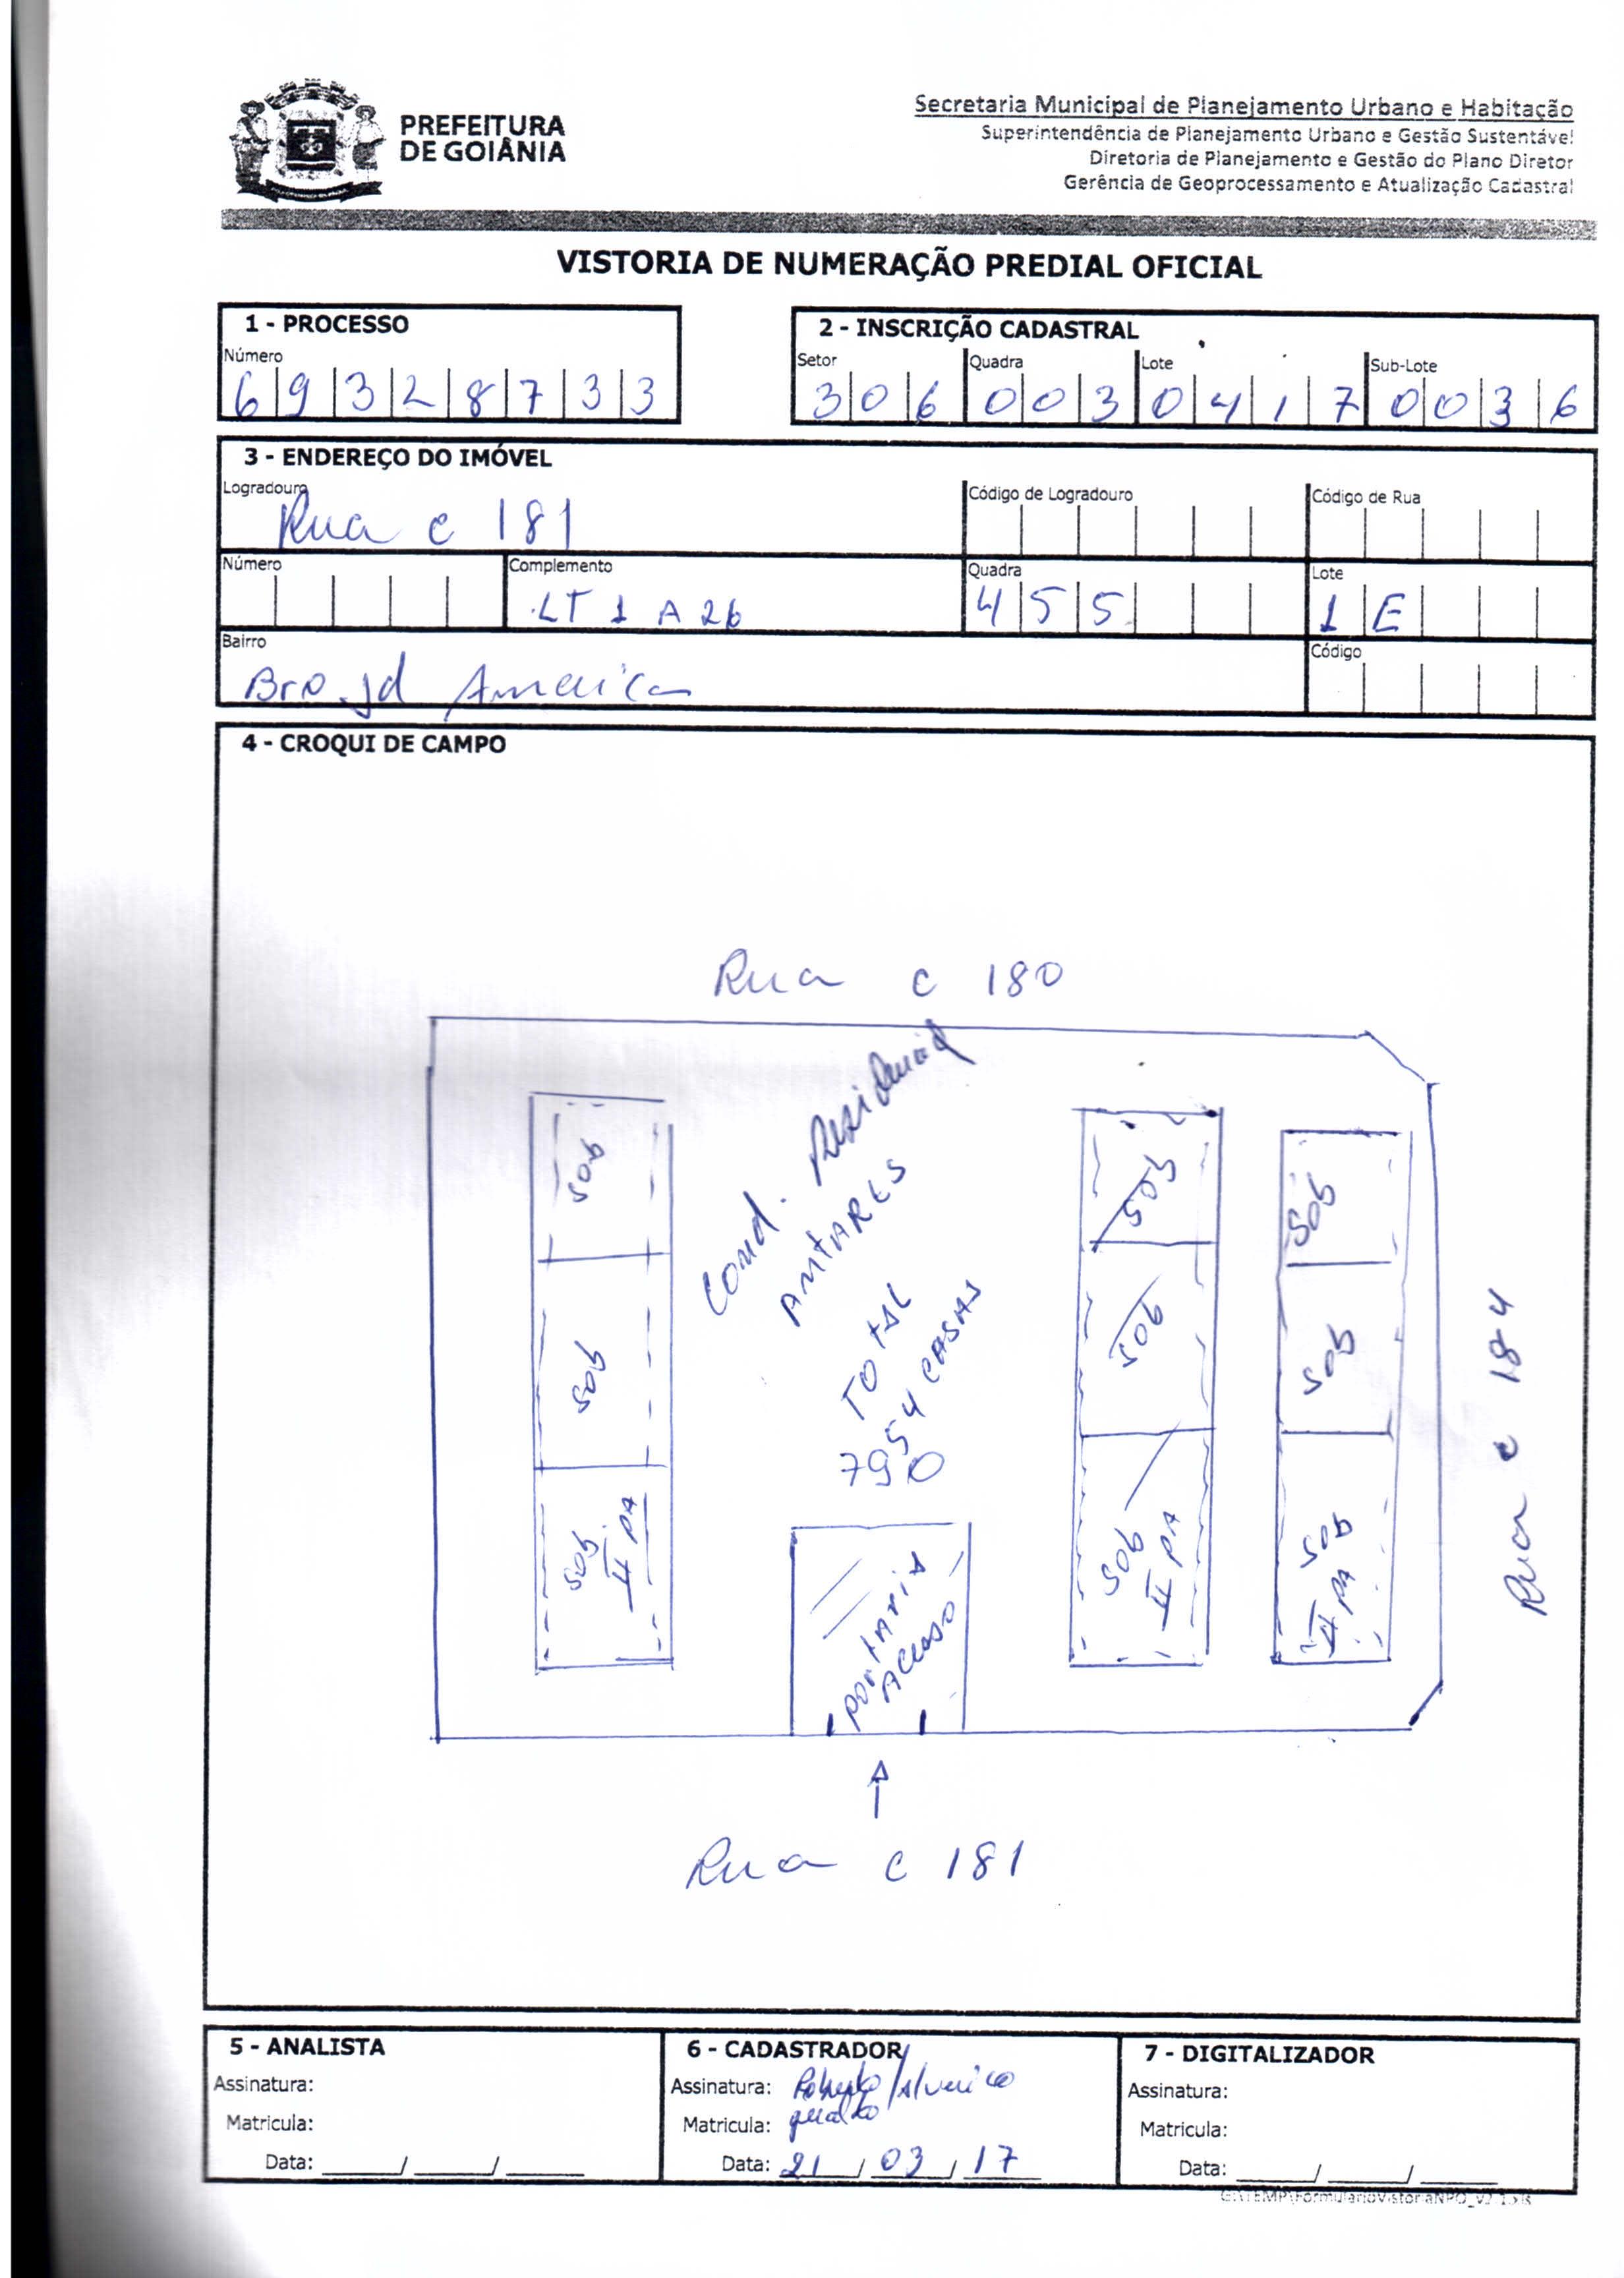 PREFEITURA
DE GOIÂNIA
Secretaria Municipal de Planejamento Urbano e Habitação
Superintendência de Planejamento Urbano e Gestão Sustentável
Diretoria de Planejamento e Gestão do Plano Diretor
Gerência de Geoprocessamento e Atualização Cadastral
VISTORIA DE NUMERAÇÃO PREDIAL OFICIAL
1 - PROCESSO
Número
69328733
2 - INSCRIÇÃO CADASTRAL
Setor Quadra Lote Sub-Lote
306 003 0417 0036
3 - ENDEREÇO DO IMÓVEL
Logradouro Código de Logradouro Código de Rua
Rua c 181
Número Complemento Quadra Lote
LT 1 A 26 455 1E
Bairro Código
Bro Jd America
4 - CROQUI DE CAMPO
Rua c 180
Cond. Residencial
ANTARES
TOTAL
54 CASAS
790
sob
sob
sob
II PA
sob
sob
sob
II PA
sob
sob
sob
II PA
Rua c 184
portaria
Acesso
Rua c 181
5 - ANALISTA
Assinatura:
Matricula:
Data: ____/____/____
6 - CADASTRADOR
Assinatura: Roberto /
Matricula:
Data: 21/03/17
7 - DIGITALIZADOR
Assinatura:
Matricula:
Data: ____/____/____